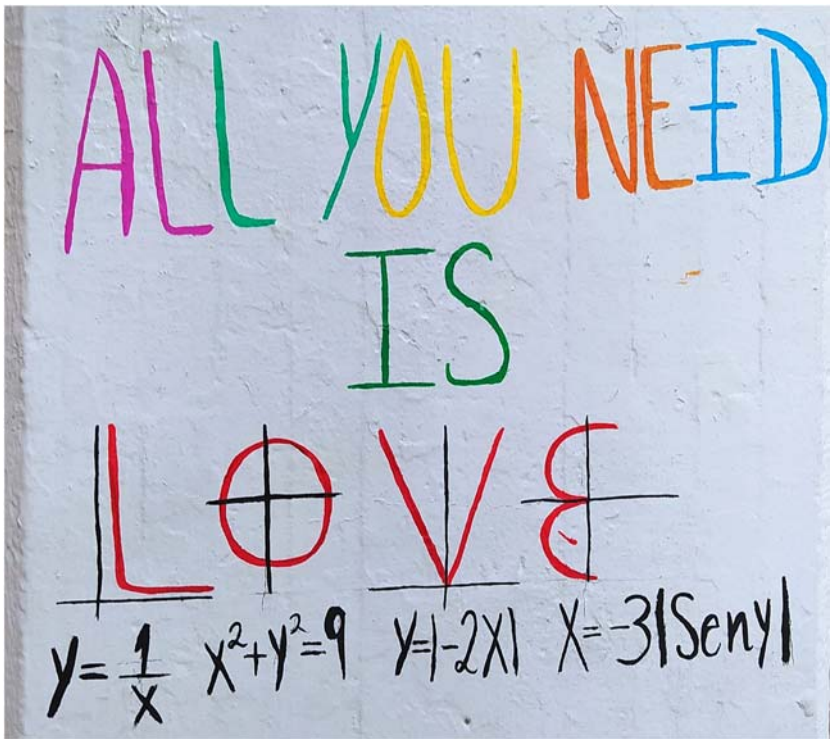 ALL YOU NEED
IS
LOVE
y = 1/x x²+y²=9 y=|-2x| x=-3|Seny|